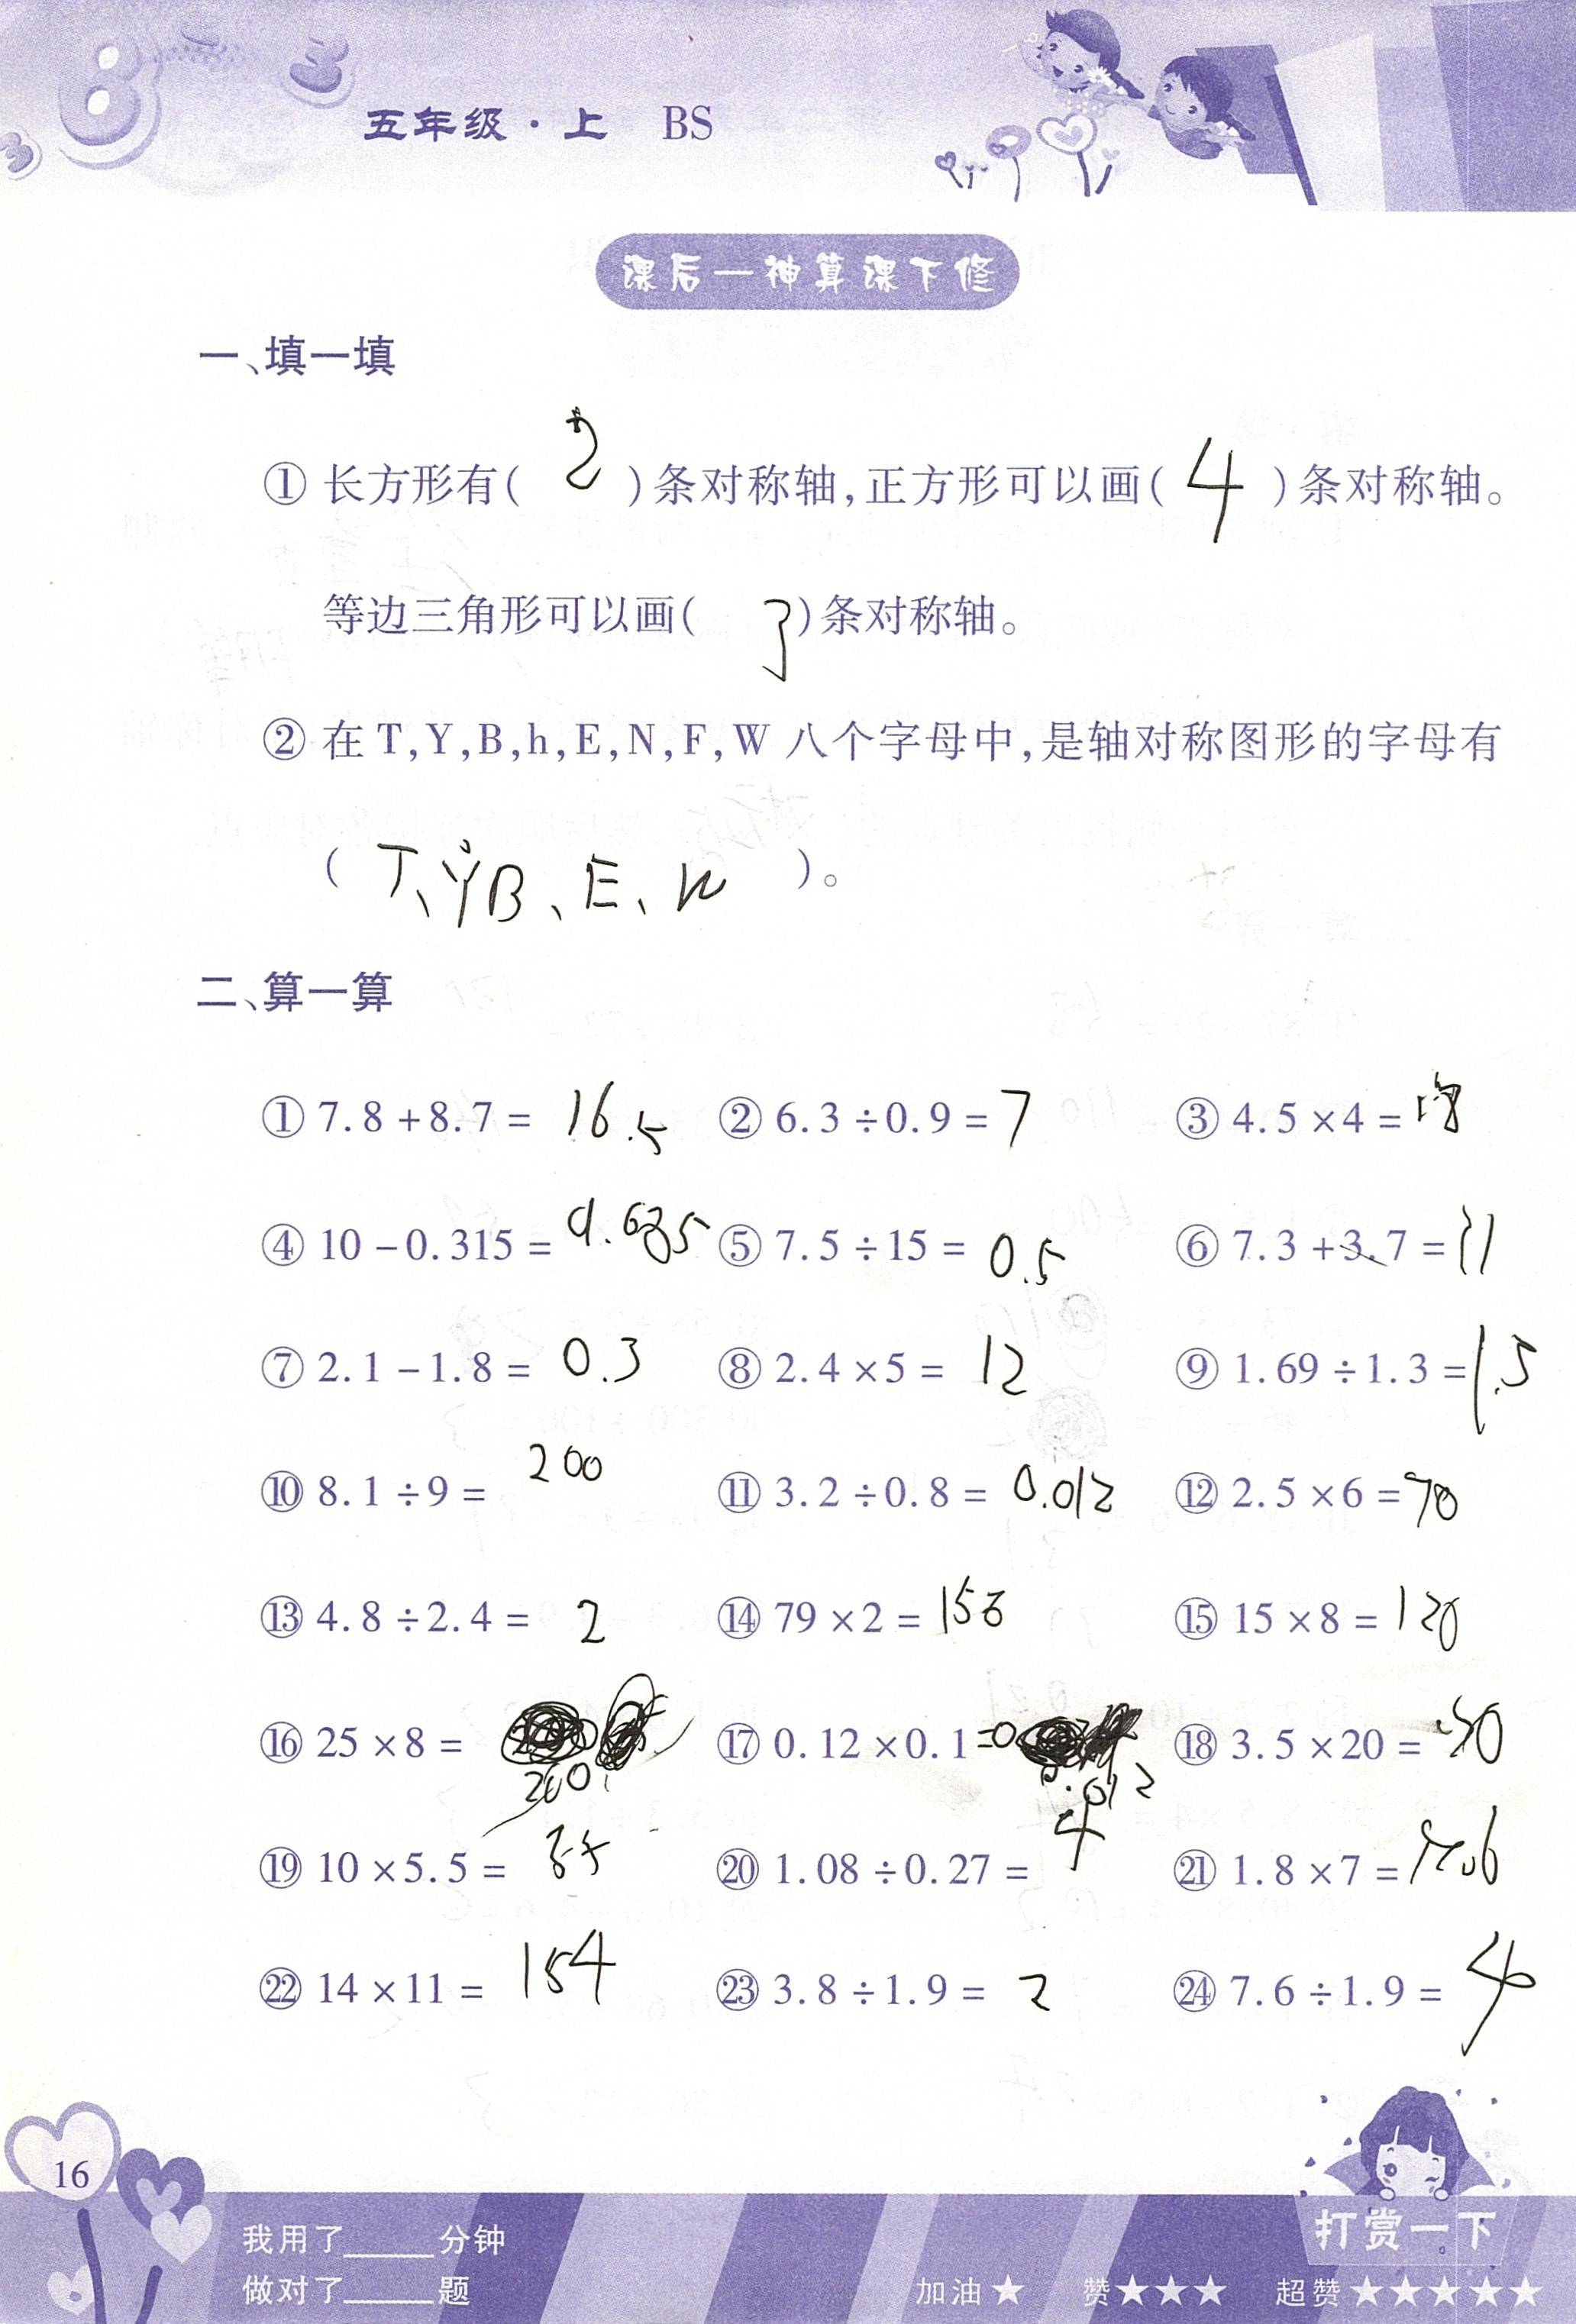 五年级·上 BS
课后一神算课下修
一、填一填
① 长方形有( 2 )条对称轴,正方形可以画( 4 )条对称轴。
等边三角形可以画( 3 )条对称轴。
② 在 T,Y,B,h,E,N,F,W 八个字母中,是轴对称图形的字母有
( T、Y B、E、W )。
二、算一算
① 7.8+8.7= 16.5 ② 6.3÷0.9= 7 ③ 4.5×4= 18
④ 10-0.315= 9.685 ⑤ 7.5÷15= 0.5 ⑥ 7.3+3.7= 11
⑦ 2.1-1.8= 0.3 ⑧ 2.4×5= 12 ⑨ 1.69÷1.3= 1.3
⑩ 8.1÷9= 200 ⑪ 3.2÷0.8= 0.012 ⑫ 2.5×6= 70
⑬ 4.8÷2.4= 2 ⑭ 79×2= 158 ⑮ 15×8= 120
⑯ 25×8= 200 ⑰ 0.12×0.1= 0.012 ⑱ 3.5×20=
⑲ 10×5.5= 55 ⑳ 1.08÷0.27= 4 ㉑ 1.8×7=
㉒ 14×11= 154 ㉓ 3.8÷1.9= 2 ㉔ 7.6÷1.9= 4
16
打赏一下
我用了______分钟
做对了______题
加油★ 赞★★★ 超赞★★★★★